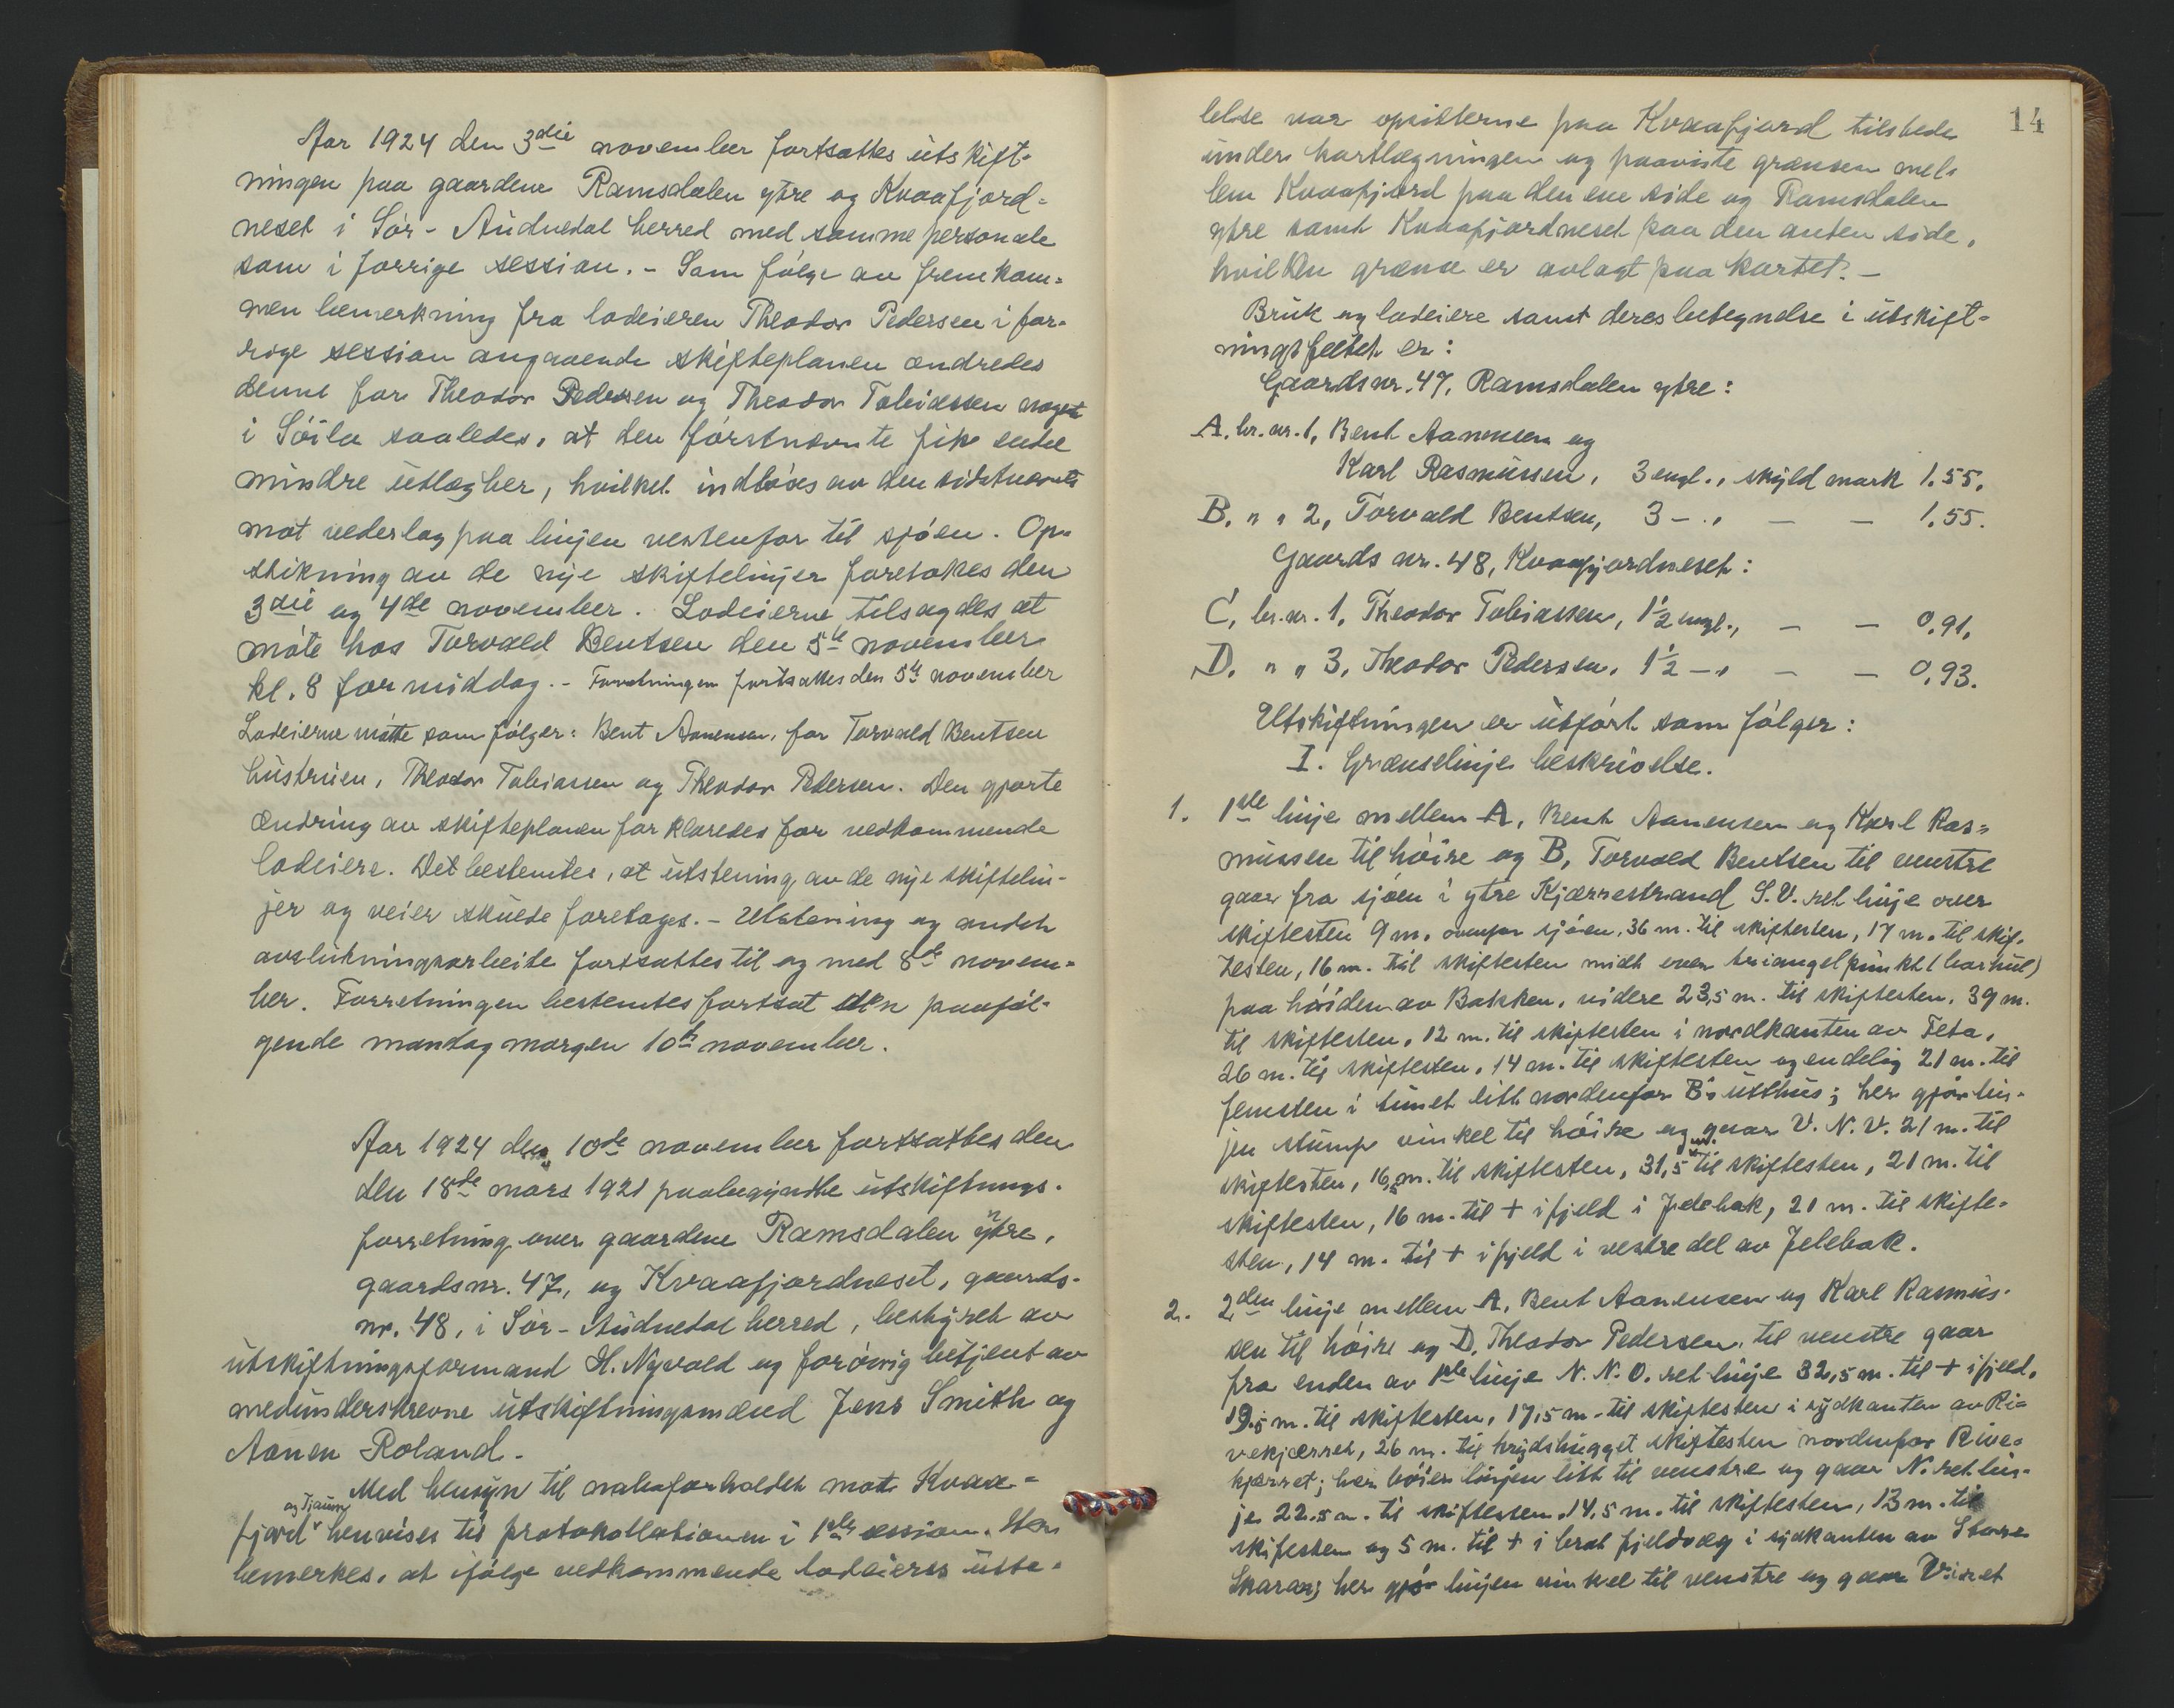 Aar 1924 den 3die november fortsattes utskift-
ningen paa gaardene Ramsdalen ytre og Kvaafjord-
neset i Sör-Audnedal herred med samme personale
som i forrige session. - Som fölge av fremkom-
men bemerkning fra lodeieren Theodor Pedersen i for-
rige session angaaende skifteplanen ændredes
denne for Theodor Pedersen og Theodor Tobiassen noget
i Söila saaledes, at den förstnævnte fik endel
mindre utlæg her, hvilket indlöses av den sidstnævnte
mot vederlag paa linjen vestenfor til sjöen. Op-
stikning av de nye skiftelinjer foretokes den
3die og 4de november. Lodeierne tilsagdes at
möte hos Torvald Bentsen den 5te november
kl. 8 formiddag. - Forretningen fortsattes den 5te november
Lodeierne mötte som fölger: Bent Aanensen, for Torvald Bentsen
hustruen, Theodor Tobiassen og Theodor Pedersen. Den gjorte
ændring av skifteplanen forklaredes for vedkommende
lodeiere. Det bestemtes, at utstening av de nye skiftelin-
jer og veier skulde foretages. - Utstening og andet
avslutningsarbeide fortsattes til og med 8de novem-
ber. Forretningen bestemtes fortsat den paaföl-
gende mandag morgen 10de november.
Aar 1924 den 10de november fortsattes den
den 18de mars 1921 paabegyndte utskiftnings-
forretning over gaardene Ramsdalen ytre,
gaardsnr. 47, og Kvaafjordneset, gaards-
nr. 48, i Sör-Audnedal herred, bestyret av
utskiftningsformand H. Nyvold og forövrig betjent av
medunderskrevne utskiftningsmænd Jens Smith og
Aanen Roland. -
Med hensyn til naboforholdet mot Kvaa-
og Tjaum
fjord henvises til protokollationen i 1ste session. Her
bemerkes, at ifölge vedkommende lodeieres utta-
14
lelse var opsitterne paa Kvaafjord tilstede
under kartlægningen og paaviste grænsen mel-
lem Kvaafjord paa den ene side og Ramsdalen
ytre samt Kvaafjordneset paa den anten side,
hvilken grænse er avlagt paa kartet. -
Bruk og lodeiere samt deres betegnelse i utskift-
ningsfeltet er:
Gaardsnr. 47, Ramsdalen ytre:
A. br. nr. 1, Bent Aanensen og
Karl Rasmussen, 3 engl., skyld mark 1.55.
B. " " 2, Torvald Bentsen, 3 - ., - - 1.55.
Gaards nr. 48, Kvaafjordneset:
C, br. nr. 1, Theodor Tobiassen, 1½ engl., - - 0.91,
D. " " 3, Theodor Pedersen, 1½ - , - - 0.93.
Utskiftningen er utfört som fölger:
I. Grænselinje beskrivelse.
1. 1ste linje mellem A, Bent Aanensen og Karl Ras-
mussen til höire og B, Torvald Bentsen til venstre
gaar fra sjöen i ytre Kjærrestrand S.V. ret linje over
skiftesten 9 m. ovenfor sjöen, 36 m. til skiftesten, 17 m. til skif-
testen, 16 m. til skiftesten midt over triangelpunkt (borhul)
paa höiden av Bakken, videre 23,5 m. til skiftesten, 39 m.
til skiftesten, 12 m. til skiftesten i nordkanten av Feta,
26 m. til skiftesten, 14 m. til skiftesten og endelig 21 m. til
femsten i tunet litt nordenfor B's uthus; her gjör lin-
jen stump vinkel til höire og gaar V. N. V. 21 m. til
skiftesten, 16,5 m. til skiftesten, 31,5 m. til skiftesten, 21 m. til
skiftesten, 16 m. til + i fjeld i Jelebak, 21 m. til skifte-
sten, 14 m. til + i fjeld i vestre del av Jelebak.
2. 2den linje mellem A, Bent Aanensen og Karl Rasmus-
sen til höire og D, Theodor Pedersen, til venstre gaar
fra enden av 1ste linje N. N. O. ret linje 32,5 m. til + i fjeld,
19,5 m. til skiftesten, 17,5 m. til skiftesten i sydkanten av Ri-
vekjærret, 26 m. til krydshugget skiftesten nordenfor Rive-
kjærret; her böier linjen litt til venstre og gaar N. ret lin-
je 22,5 m. til skiftesten, 14,5 m. til skiftesten, 13 m. til
skiftesten og 5 m. til + i brat fjeldvæg i sydkanten av Store
Skaraas; her gjör linjen vinkel til venstre og gaar V. ret